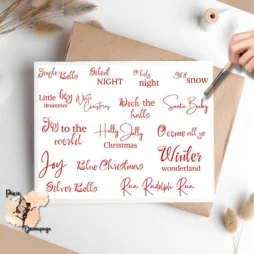 Jingle Bells
Silent
NIGHT
O holy
night
Let it
snow
Little boy
drummer
White
Christmas
Deck the
halls
Santa Baby
Joy to the
world
Holly Jolly
Christmas
O come all ye
Joy
Blue Christmas
Winter
wonderland
Silver Bells
Run Rudolph Run
Pixie
Decoupage